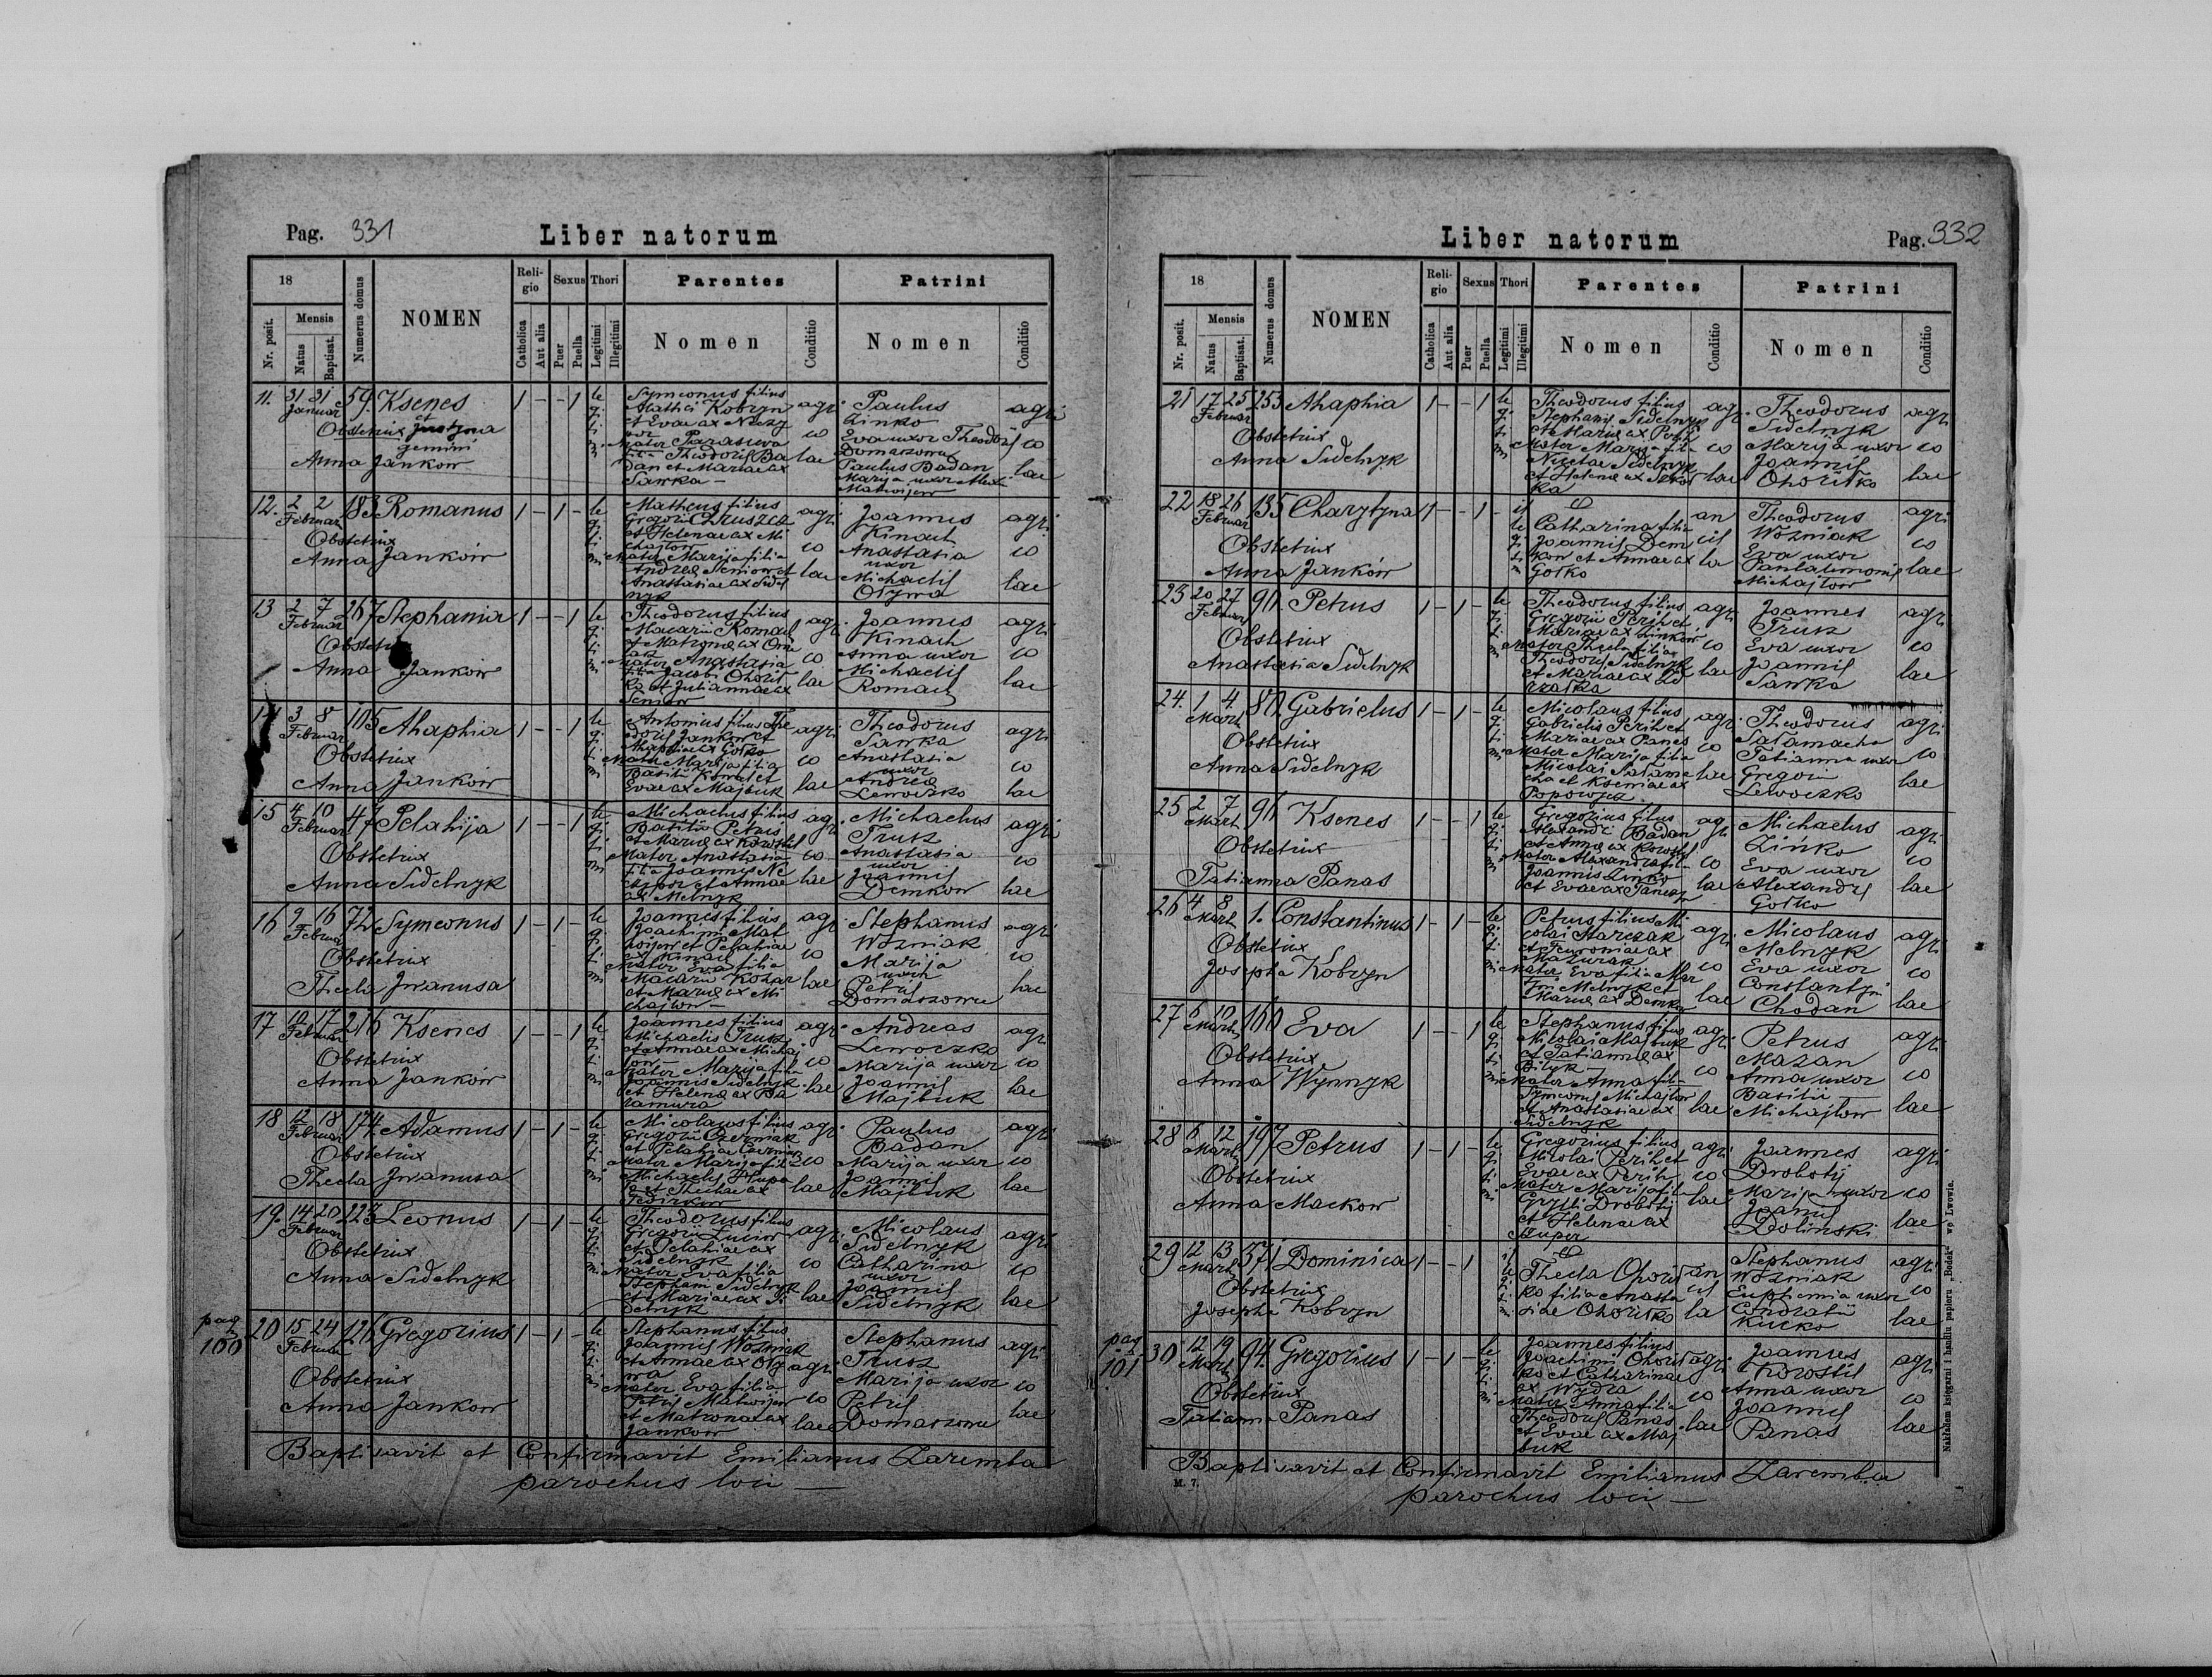 Pag. 331
Liber natorum
18
Nr. posit.
Mensis
Natus
Baptisat.
Numerus domus
NOMEN
Religio
Catholica
Aut alia
Sexus
Puer
Puella
Thori
Legitimi
Illegitimi
Parentes
Nomen
Conditio
Patrini
Nomen
Conditio
11. 31 31 Januar 59. Ksenes
et Justyna
gemini
Obstetrix
Anna Jankow
1 - - 1 legitimi
Symeonus filius
Mathei Kobryn
et Evae ax
Mater Parasewa
filia Theodori Ba
dan et Mariae ax
Sawka -
agricolae
Paulus
Zinko
Eva uxor Theodori
Domaszowec
Paulus Badan
Marija uxor
Matwijow
agricolae
12. 2 2 Februar 183 Romanus
Obstetrix
Anna Jankow
1 - 1 - legitimi
Matheus filius
Gregorii Chruszcz
et Helenae ax Mi
chajlow
Mater Marija filia
Andreae Seniow et
Anastasiae ax Sidel
nyk
agricolae
Joannes
Kinach
Anastasia
uxor
Michaelis
Olywa
agricolae
13 2 7 Februar 267 Stephania
Obstetrix
Anna Jankow
1 - - 1 legitimi
Theodorus filius
Macarii Romach
et Matronae ax
Mater Anastasia
filia Jacobi Ohorit
ko et Juliannae ax
Seniow
agricolae
Joannes
Kinach
Anna uxor
Michaelis
Romach
agricolae
14 3 8 Februar 105 Ahaphia
Obstetrix
Anna Jankow
1 - - 1 legitimi
Antonius filius The
doris Jankow et
Ahaphiae ax Gotko
Mater Marija filia
Basilii Kowal et
Evae ax Majbuk
agricolae
Theodorus
Sawka
Anastasia
uxor
Andreae
Lewoczko
agricolae
15 4 10 Februar 47 Pelahija
Obstetrix
Anna Sidelnyk
1 - - 1 legitimi
Michaelus filius
Basilii Petris
et Mariae ax Korostil
Mater Anastasia
filia Joannis
et Annae
ax Melnyk
agricolae
Michaelus
Trusz
Anastasia
uxor
Joannis
Demkow
agricolae
16 9 16 Februar 72 Symeonus
Obstetrix
Thecla Iwanusa
1 - 1 - legitimi
Joannes filius
Joachimi Mat
wijow et Pelahiae
ax Kinach
Mater Eva filia
Macarii Kozar
et Mariae ax Mi
chajlow
agricolae
Stephanus
Wozniak
Marija
uxor
Petri
Domaszowec
agricolae
17 10 17 Februar 216 Ksenes
Obstetrix
Anna Jankow
1 - - 1 legitimi
Joannes filius
Michaelis Trusz
et Annae ax Michaj
low
Mater Marija filia
Joannis Sidelnyk
et Helenae ax Ba
ramura
agricolae
Andreas
Lewoczko
Marija uxor
Joannis
Majbuk
agricolae
18 12 18 Februar 174 Adamus
Obstetrix
Thecla Iwanusa
1 - 1 - legitimi
Micolaus filius
Gregorii Czerniak
et Pelahiae
Mater Marija filia
Michaelis
et Theclae ax
Fedirkow
agricolae
Paulus
Badan
Marija uxor
Joannis
Majbuk
agricolae
19. 14 20 Februar 223 Leonus
Obstetrix
Anna Sidelnyk
1 - 1 - legitimi
Theodorus filius
Gregorii Luciw
et Pelahiae ax
Sidelnyk
Mater Eva filia
Stephani Sidelnyk
et Mariae ax Si
delnyk
agricolae
Micolaus
Sidelnyk
Catharina
uxor
Joannis
Sidelnyk
agricolae
pag 100
20 15 24 Februar 126 Gregorius
Obstetrix
Anna Jankow
1 - 1 - legitimi
Stephanus filius
Joannis Wozniak
et Annae ax Oly
wa
Mater Eva filia
Petri Matwijow
et Matronae ax
Jankow
agricolae
Stephanus
Trusz
Marija uxor
Petri
Domaszowec
agricolae
Baptisavit et Confirmavit Emilianus Zaremba
parochus loci —
Liber natorum
Pag. 332
18
Nr. posit.
Mensis
Natus
Baptisat.
Numerus domus
NOMEN
Religio
Catholica
Aut alia
Sexus
Puer
Puella
Thori
Legitimi
Illegitimi
Parentes
Nomen
Conditio
Patrini
Nomen
Conditio
21 17 25 Februar 253 Ahaphia
Obstetrix
Anna Sidelnyk
1 - - 1 legitimi
Theodorus filius
Stephani Sidelnyk
et Mariae ax Perih
Mater Marija filia
Nicetae Sidelnyk
et Helenae ax
agricolae
Theodorus
Sidelnyk
Marija uxor
Joannis
Ohoritko
agricolae
22 18 26 Februar 135 Charytyna
Obstetrix
Anna Jankow
1 - - 1 - illegitim
Catharina filia
Joannis Dem
kow et Annae ax
Gotko
ancilla
Theodorus
Wozniak
Eva uxor
Pantalemonis
Michajlow
agricolae
23 20 27 Februar 90. Petrus
Obstetrix
Anastasia Sidelnyk
1 - 1 - legitimi
Theodorus filius
Gregorii Perih et
Mariae ax Zinkow
Mater Thecla filia
Theodori Sidelnyk
et Mariae ax
agricolae
Joannes
Trusz
Eva uxor
Joannis
Sawka
agricolae
24. 1 4 Mart. 80 Gabrielus
Obstetrix
Anna Sidelnyk
1 - 1 - legitimi
Micolaus filius
Gabrielis Perih et
Mariae ax Panas
Mater Marija filia
Micolai Salama
cha et Kseniae ax
Popowycz
agricolae
Theodorus
Salamacha
Tatianna uxor
Gregorii
Lewoczko
agricolae
25 2 7 Mart. 96 Ksenes
Obstetrix
Tatianna Panas
1 - - 1 legitimi
Gregorius filius
Alexandri Badan
et Annae ax Korostil
Mater Alexandra fil-
Joannis Zinko
et Evae ax Panas
agricolae
Michaelus
Zinko
Eva uxor
Alexandri
Gotko
agricolae
26 4 8 Mart. 1. Constantinus
Obstetrix
Josepha Kobryn
1 - 1 - legitimi
Petrus filius Mi
colai Marczak
et Fewroniae ax
Mazurak
Mater Eva filia Mar
tini Melnyk et
Mariae ax Demko
agricolae
Micolaus
Melnyk
Eva uxor
Constantyni
Chodan
agricolae
27 6 10 Mart. 160 Eva
Obstetrix
Anna Wynnyk
1 - - 1 legitimi
Stephanus filius
Micolai Majbuk
et Tatiannae ax
Bilyk -
Mater Anna fili-
Symeonis Michajlow
et Anastasiae ax
Sidelnyk
agricolae
Petrus
Mazan
Anna uxor
Basilii
Michajlow
agricolae
28 6 12 Mart. 197 Petrus
Obstetrix
Anna Mackow
1 - 1 - legitimi
Gregorius filius
Micolai Perih et
Evae ax Perih
Mater Marija fil-
Gryhi Drobotij
et Helenae ax
Super
agricolae
Joannes
Drobotij
Marija uxor
Joannis
Dolinski
agricolae
29 12 13 Mart. 371 Dominica
Obstetrix
Josepha Kobryn
1 - - 1 illegitim
Thecla Ohorit
ko filia Anasta
siae Ohoritko
ancilla
Stephanus
Wozniak
Euphemia uxor
Condratii
Kucko
agricolae
pag 101
30 12 19 Mart. 94. Gregorius
Obstetrix
Tatianna Panas
1 - 1 - legitimi
Joannes filius
Joachimi Ohorit
ko et Catharinae
ax Wydra
Mater Anna filia
Theodori Panas
et Evae ax Maj
buk
agricolae
Joannes
Korostil
Anna uxor
Joannis
Panas
agricolae
Baptisavit et Confirmavit Emilianus Zaremba
parochus loci —
M. 7.
Nakładem księgarni i handlu papieru „Bodek" we Lwowie.